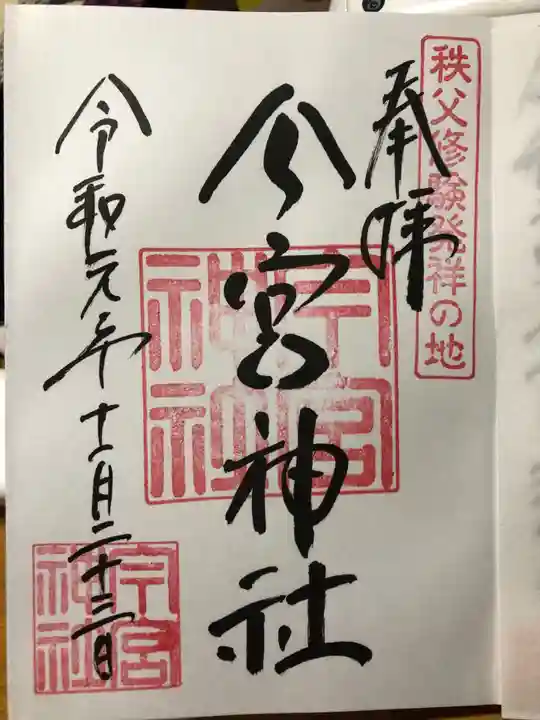 秩父修験発祥の地
奉拝
今宮神社
今宮神社
令和元年十一月二十三日
今宮神社